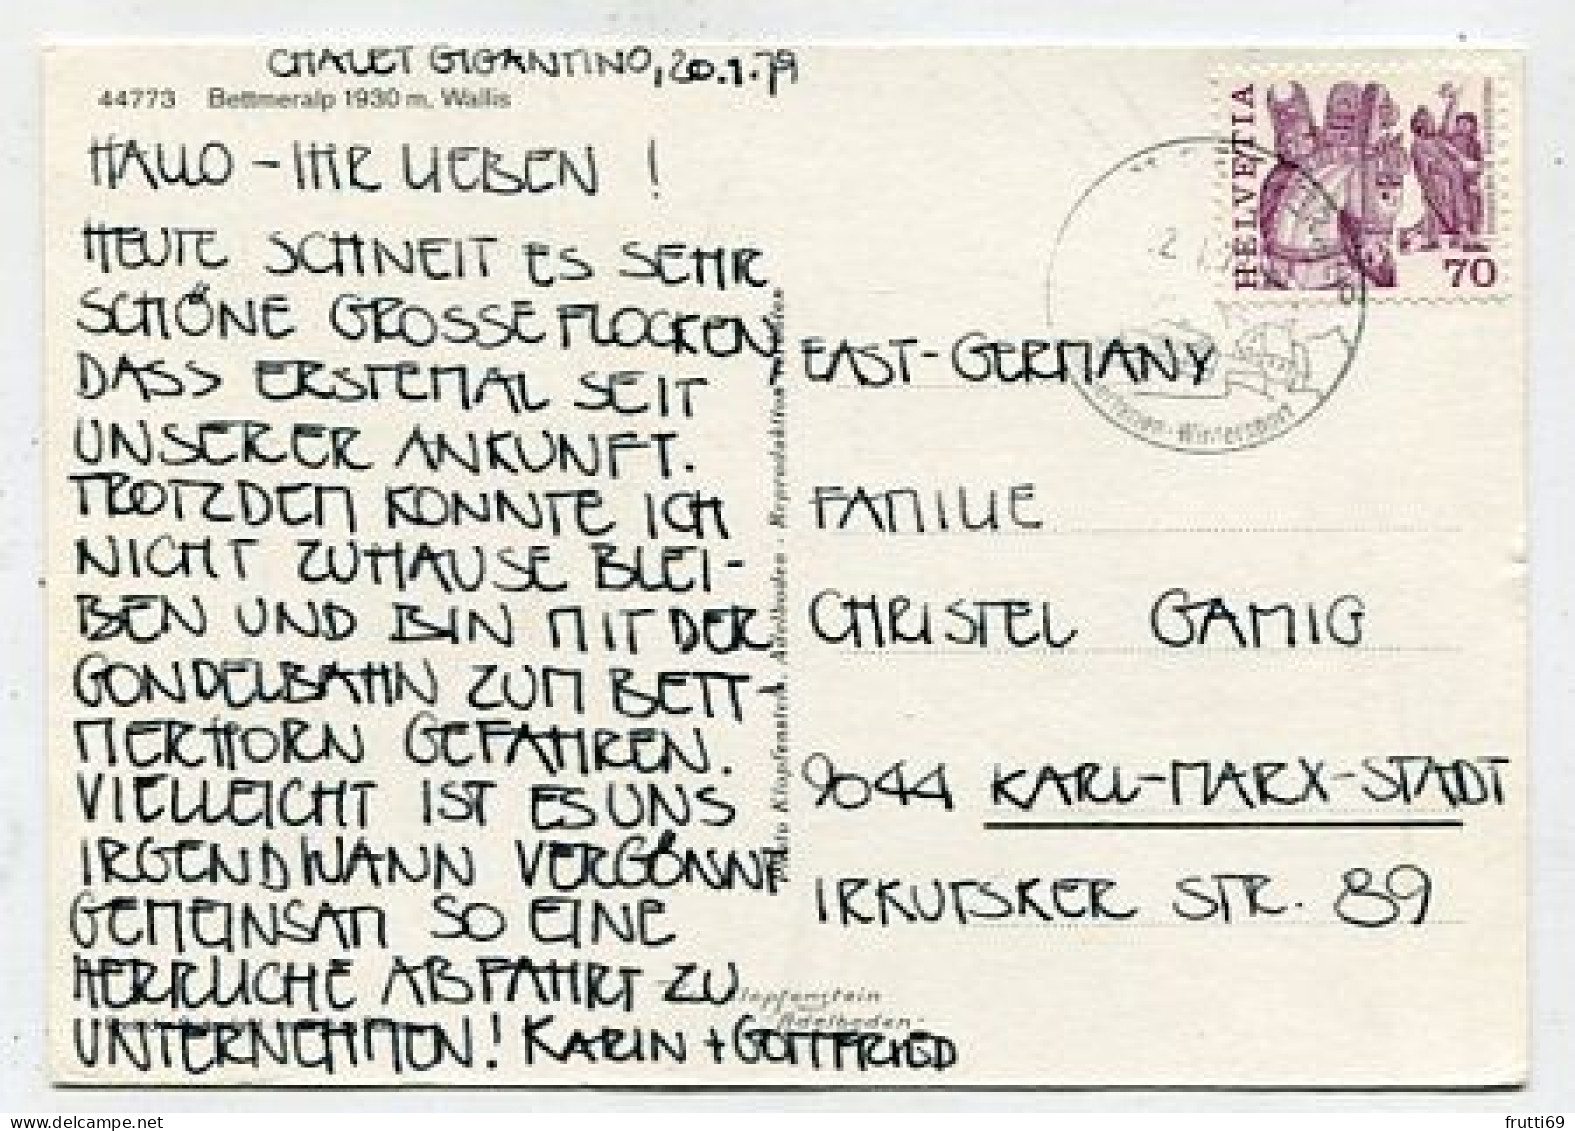 CHALET GIGANTINO, 20.1.79
44773 Bettmeralp 1930 m, Wallis
HALLO - IHR LIEBEN !
HEUTE SCHNEIT ES SEHR
SCHÖNE GROSSE FLOCKEN
DASS ERSTEMAL SEIT
UNSERER ANKUNFT.
TROTZDEM KONNTE ICH
NICHT ZUHAUSE BLEI-
BEN UND BIN MIT DER
GONDELBAHN ZUM BETT-
MERHORN GEFAHREN.
VIELLEICHT IST ES UNS
IRGENDWANN VERGÖNNT
GEMEINSAM SO EINE
HERRLICHE ABFAHRT ZU
UNTERNEHMEN! KARIN + GOTTFRIED
Photo Klopfenstein, Adelboden - Reproduktion
Klopfenstein
Adelboden
HELVETIA
70
Wintersport
EAST-GERMANY
FAMILIE
CHRISTEL GAMIG
9044 KARL-MARX-STADT
IRKUTSKER STR. 89
frutti69